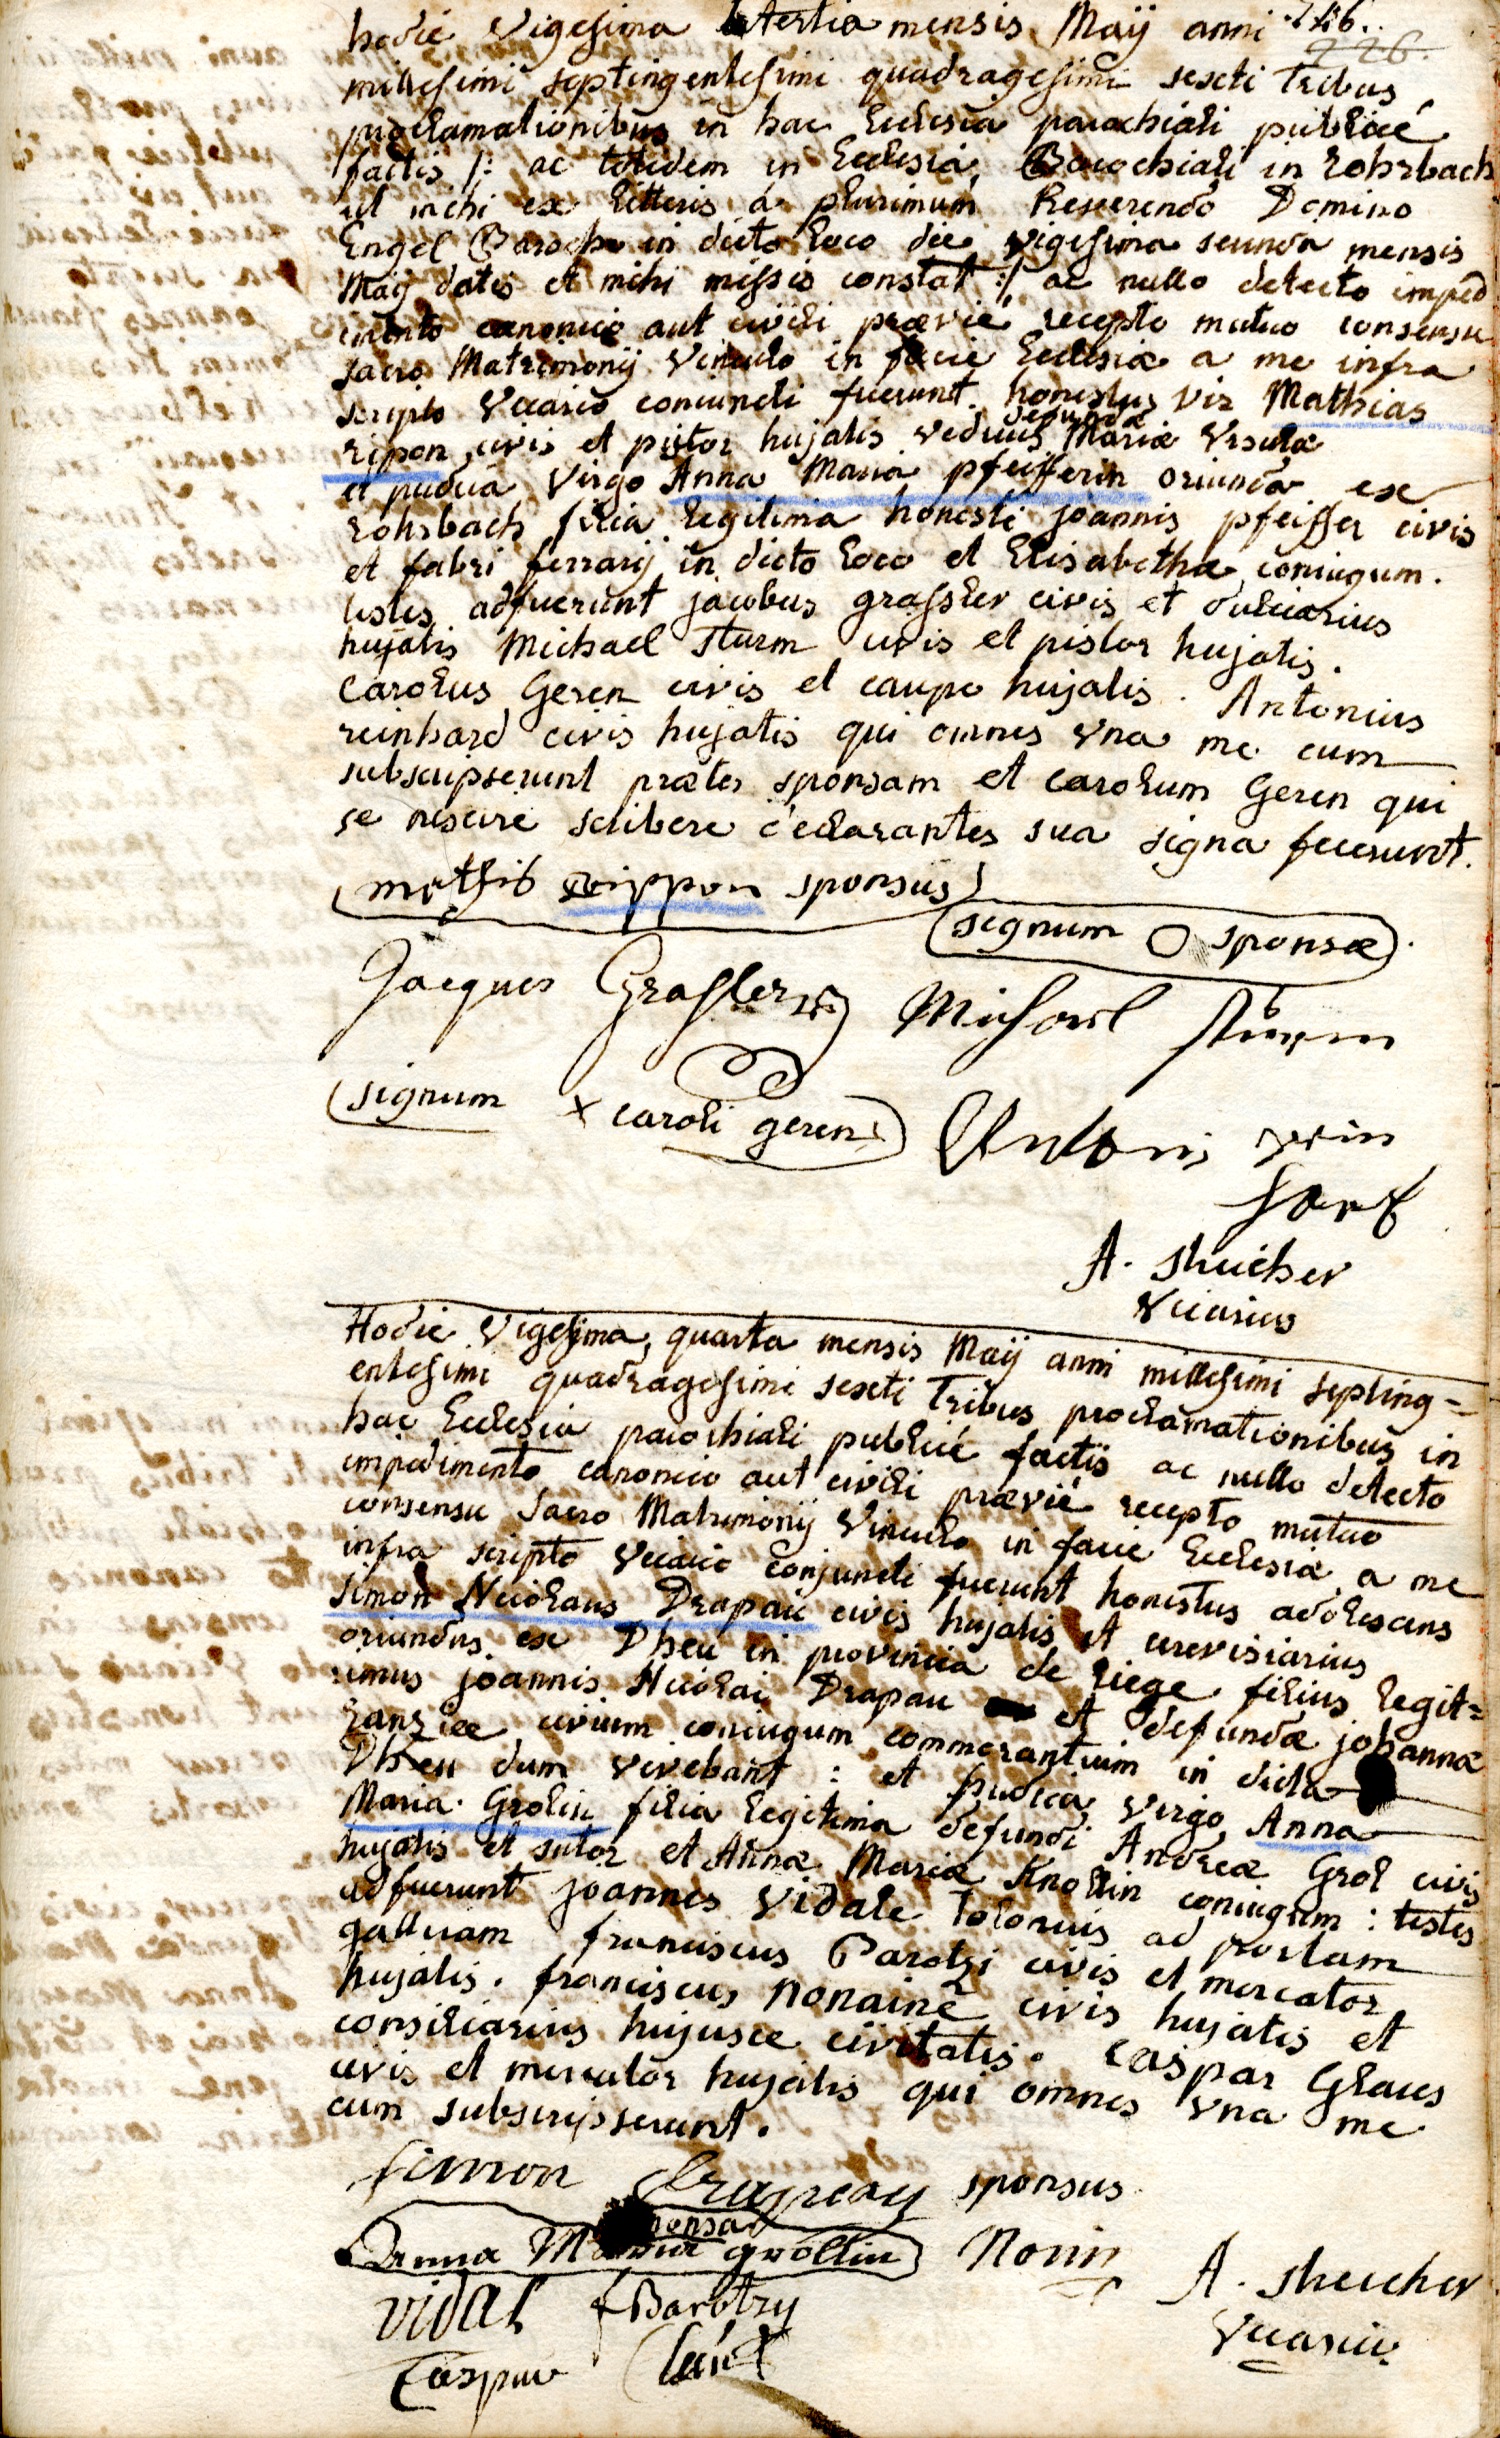 hodie Vigesima tertia mensis Maÿ anni
226.
millesimi septingentesimi quadragesimi sexti Tribus
proclamationibus in hac Ecclesia parochiali publicè
factis /: ac totidem in Ecclesia Parochiali in Rohrbach
ut mihi ex litteris a plurimum Reverendo Domino
Engel Parocho in dicto loco die vigesima secunda mensis
Maÿ datis et mihi missis constat :/ ac nullo detecto imped
imento canonico aut civili prævie recepto mutuo consensu
sacro Matrimonÿ Vinculo in facie Ecclesiæ a me infra
scripto Vicario coniuncti fuerunt honestus vir Mathias
rippon civis et pistor hujatis viduus defunctæ Mariæ Vrsulæ
et pudica Virgo Anna Maria pfeifferin oriunda ex
Rohrbach filia legitima honesti joannis pfeiffer civis
et fabri ferrarÿ in dicto loco et Elisabethæ coniugum.
testes adfuerunt jacobus grassler civis et dulciarius
hujatis Michael Sturm civis et pistor hujatis.
Carolus Geren civis et caupo hujatis. Antonius
reinhard civis hujatis qui omnes vna me cum
subscripserunt præter sponsam et carolum Geren qui
se nescire scribere declarantes sua signa fecerunt.
mathis Rippon sponsus
signum O sponsæ.
Jacques Grassler Michael Sturm
signum x caroli geren Antoni rein
hart
A. Sheicher
Vicarius
Hodie Vigesima quarta mensis Maÿ anni millesimi septing=
entesimi quadragesimi sexti Tribus proclamationibus in
hac Ecclesia parochiali publicè factis ac nullo detecto
impedimento canonico aut civili prævie recepto mutuo
consensu sacro Matrimonÿ Vinculo in facie Ecclesiæ a me
infra scripto Vicario conjuncti fuerunt honestus adolescens
Simon Nicolaus Drapau civis hujatis et cerevisiarius
oriundus ex Dheu in provincia de Liege filius legit=
imus joannis Nicolai Drapau et defunctæ johannæ
civium coniugum commorantium in dicto
Dheu dum vivebant : et pudica Virgo Anna
Maria Grolin filia legitima defuncti Andreæ Grol civis
hujatis et sutor et Annæ Mariæ Knollin coniugum : testes
adfuerunt joannes Vidale Tolonius ad portam
gallicam franciscus Parotzi civis et mercator
hujatis. franciscus Nonaine civis hujatis et
consiliarius hujusce civitatis. Caspar Glaus
civis et mercator hujatis qui omnes vna me
cum subscripserunt.
Simon Drapeau sponsus
sponsa
Anna Maria grollin Nonin A. Sheicher
vidal f Barotzy Vicarius
Caspar